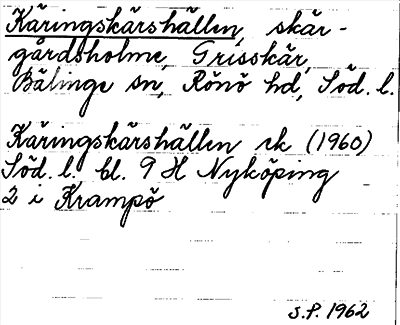 Käringskärshällen, skär-
gårdsholme, Grisskär,
Bälinge sn, Rönö hd, Söd. l.
Käringskärshällen rk (1960)
Söd. l. bl. 9 H Nyköping
2 i Krampö
S.P. 1962